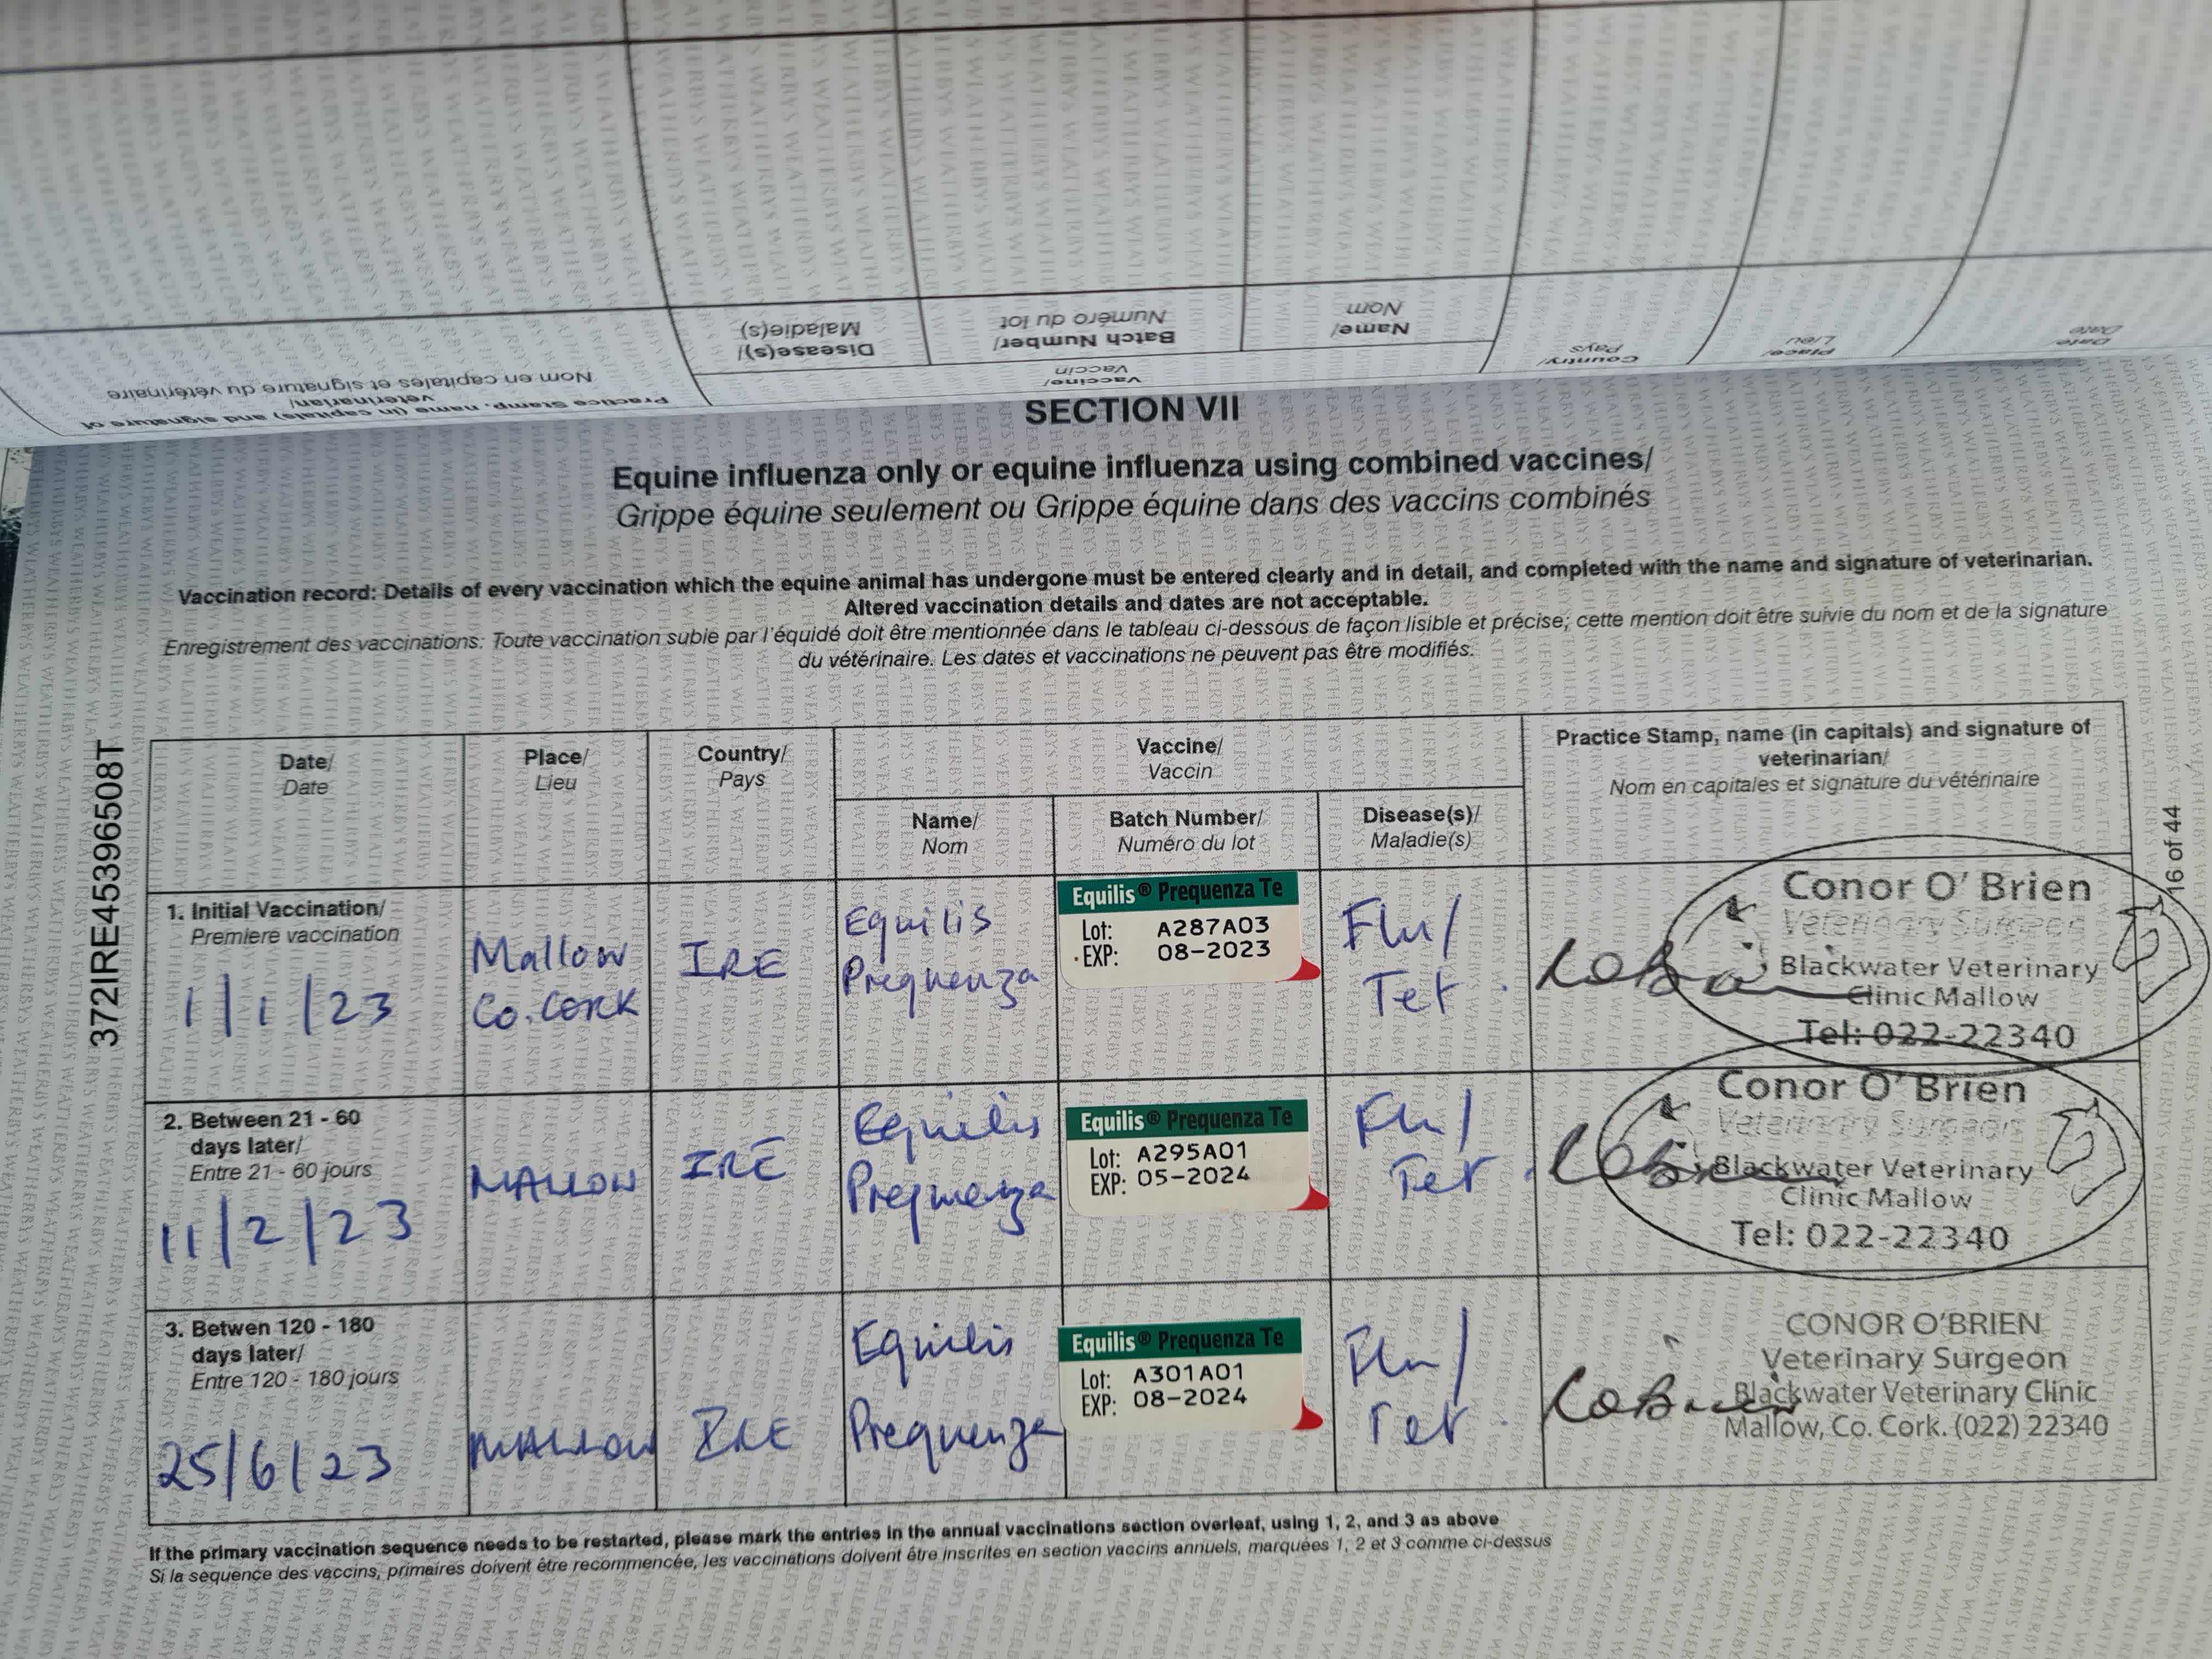 Practice Stamp, name (in capitals) and signature of
veterinarian/
Nom en capitales et signature du vétérinaire
Vaccine/
Vaccin
Disease(s)/
Maladie(s)
Batch Number/
Numéro du lot
Name/
Nom
Country/
Pays
Place/
Lieu
Date/
Date
SECTION VII
Equine influenza only or equine influenza using combined vaccines/
Grippe équine seulement ou Grippe équine dans des vaccins combinés
Vaccination record: Details of every vaccination which the equine animal has undergone must be entered clearly and in detail, and completed with the name and signature of veterinarian.
Altered vaccination details and dates are not acceptable.
Enregistrement des vaccinations: Toute vaccination subie par l'équidé doit être mentionnée dans le tableau ci-dessous de façon lisible et précise; cette mention doit être suivie du nom et de la signature
du vétérinaire. Les dates et vaccinations ne peuvent pas être modifiés.
372IRE453965508T
16 of 44
Date/
Date
Place/
Lieu
Country/
Pays
Vaccine/
Vaccin
Name/
Nom
Batch Number/
Numéro du lot
Disease(s)/
Maladie(s)
Practice Stamp, name (in capitals) and signature of
veterinarian/
Nom en capitales et signature du vétérinaire
1. Initial Vaccination/
Premiere vaccination
1/1/23
Mallow
Co. CORK
IRE
Equilis
Prequenza
Equilis® Prequenza Te
Lot: A287A03
EXP: 08-2023
Flu/
Tet
Conor O' Brien
Veterinary Surgeon
Blackwater Veterinary
Clinic Mallow
Tel: 022-22340
2. Between 21 - 60
days later/
Entre 21 - 60 jours
11/2/23
MALLOW
IRE
Equilis
Prequenza
Equilis® Prequenza Te
Lot: A295A01
EXP: 05-2024
Flu/
Tet
Conor O' Brien
Veterinary Surgeon
Blackwater Veterinary
Clinic Mallow
Tel: 022-22340
3. Betwen 120 - 180
days later/
Entre 120 - 180 jours
25/6/23
MALLOW
IRE
Equilis
Prequenza
Equilis® Prequenza Te
Lot: A301A01
EXP: 08-2024
Flu/
Tet
CONOR O'BRIEN
Veterinary Surgeon
Blackwater Veterinary Clinic
Mallow, Co. Cork. (022) 22340
If the primary vaccination sequence needs to be restarted, please mark the entries in the annual vaccinations section overleaf, using 1, 2, and 3 as above
Si la sequence des vaccins, primaires doivent être recommencée, les vaccinations doivent être inscrites en section vaccins annuels, marquées 1, 2 et 3 comme ci-dessus